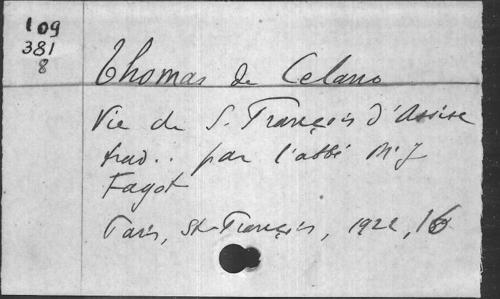 109
381
8
Thomas de Celano
Vie de S. François d'Assise
trad.. par l'abbé M. J
Fagot
Paris, St-François, 1922, 16